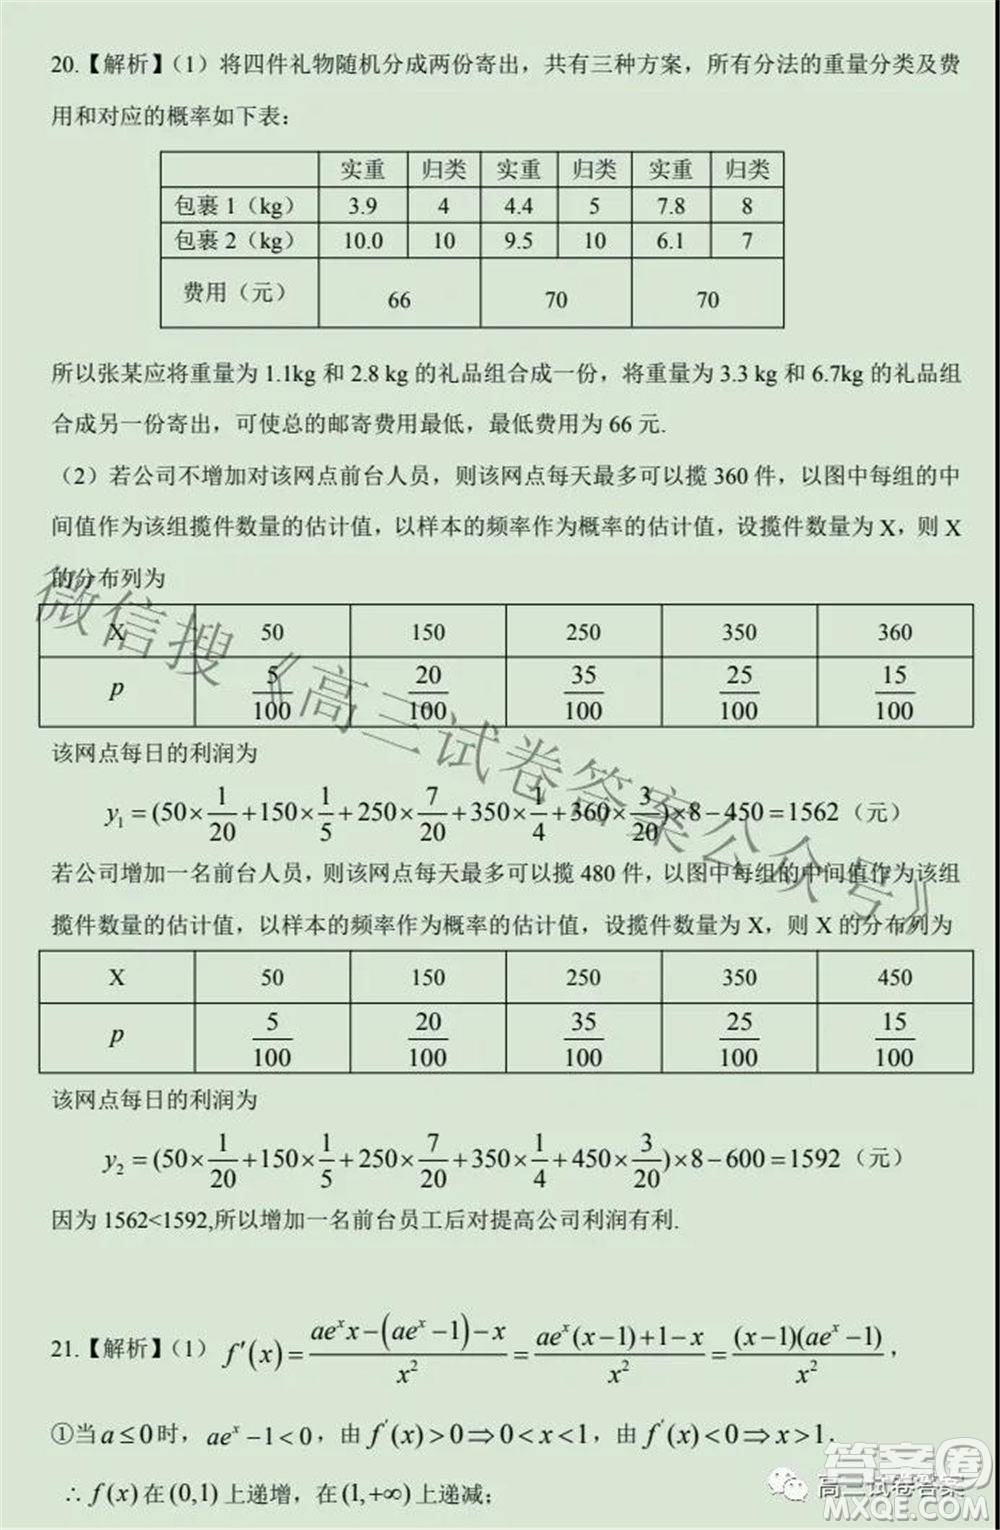 20.【解析】(1) 将四件礼物随机分成两份寄出，共有三种方案，所有分法的重量分类及费
用和对应的概率如下表：
实重 归类 实重 归类 实重 归类
包裹 1（kg） 3.9 4 4.4 5 7.8 8
包裹 2（kg） 10.0 10 9.5 10 6.1 7
费用（元） 66 70 70
所以张某应将重量为 1.1kg 和 2.8 kg 的礼品组合成一份，将重量为 3.3 kg 和 6.7kg 的礼品组
合成另一份寄出，可使总的邮寄费用最低，最低费用为 66 元.
（2）若公司不增加对该网点前台人员，则该网点每天最多可以揽 360 件，以图中每组的中
间值作为该组揽件数量的估计值，以样本的频率作为概率的估计值，设揽件数量为 X，则 X
的分布列为
X 50 150 250 350 360
p 5/100 20/100 35/100 25/100 15/100
该网点每日的利润为
y₁=(50×1/20+150×1/5+250×7/20+350×1/4+360×3/20)×8−450=1562（元）
若公司增加一名前台人员,则该网点每天最多可以揽 480 件，以图中每组的中间值作为该组
揽件数量的估计值，以样本的频率作为概率的估计值，设揽件数量为 X，则 X 的分布列为
X 50 150 250 350 450
p 5/100 20/100 35/100 25/100 15/100
该网点每日的利润为
y₂=(50×1/20+150×1/5+250×7/20+350×1/4+450×3/20)×8−600=1592（元）
因为 1562<1592,所以增加一名前台员工后对提高公司利润有利.
21.【解析】(1) f′(x)=(aeˣx−(aeˣ−1)−x)/x²=(aeˣ(x−1)+1−x)/x²=((x−1)(aeˣ−1))/x²，
①当a≤0时，aeˣ−1<0，由f′(x)>0⇒0<x<1，由f′(x)<0⇒x>1，
∴f(x)在(0,1)上递增，在(1,+∞)上递减；
微信搜《高三试卷答案公众号》
高三试卷答案
答案圈
MXQE.COM